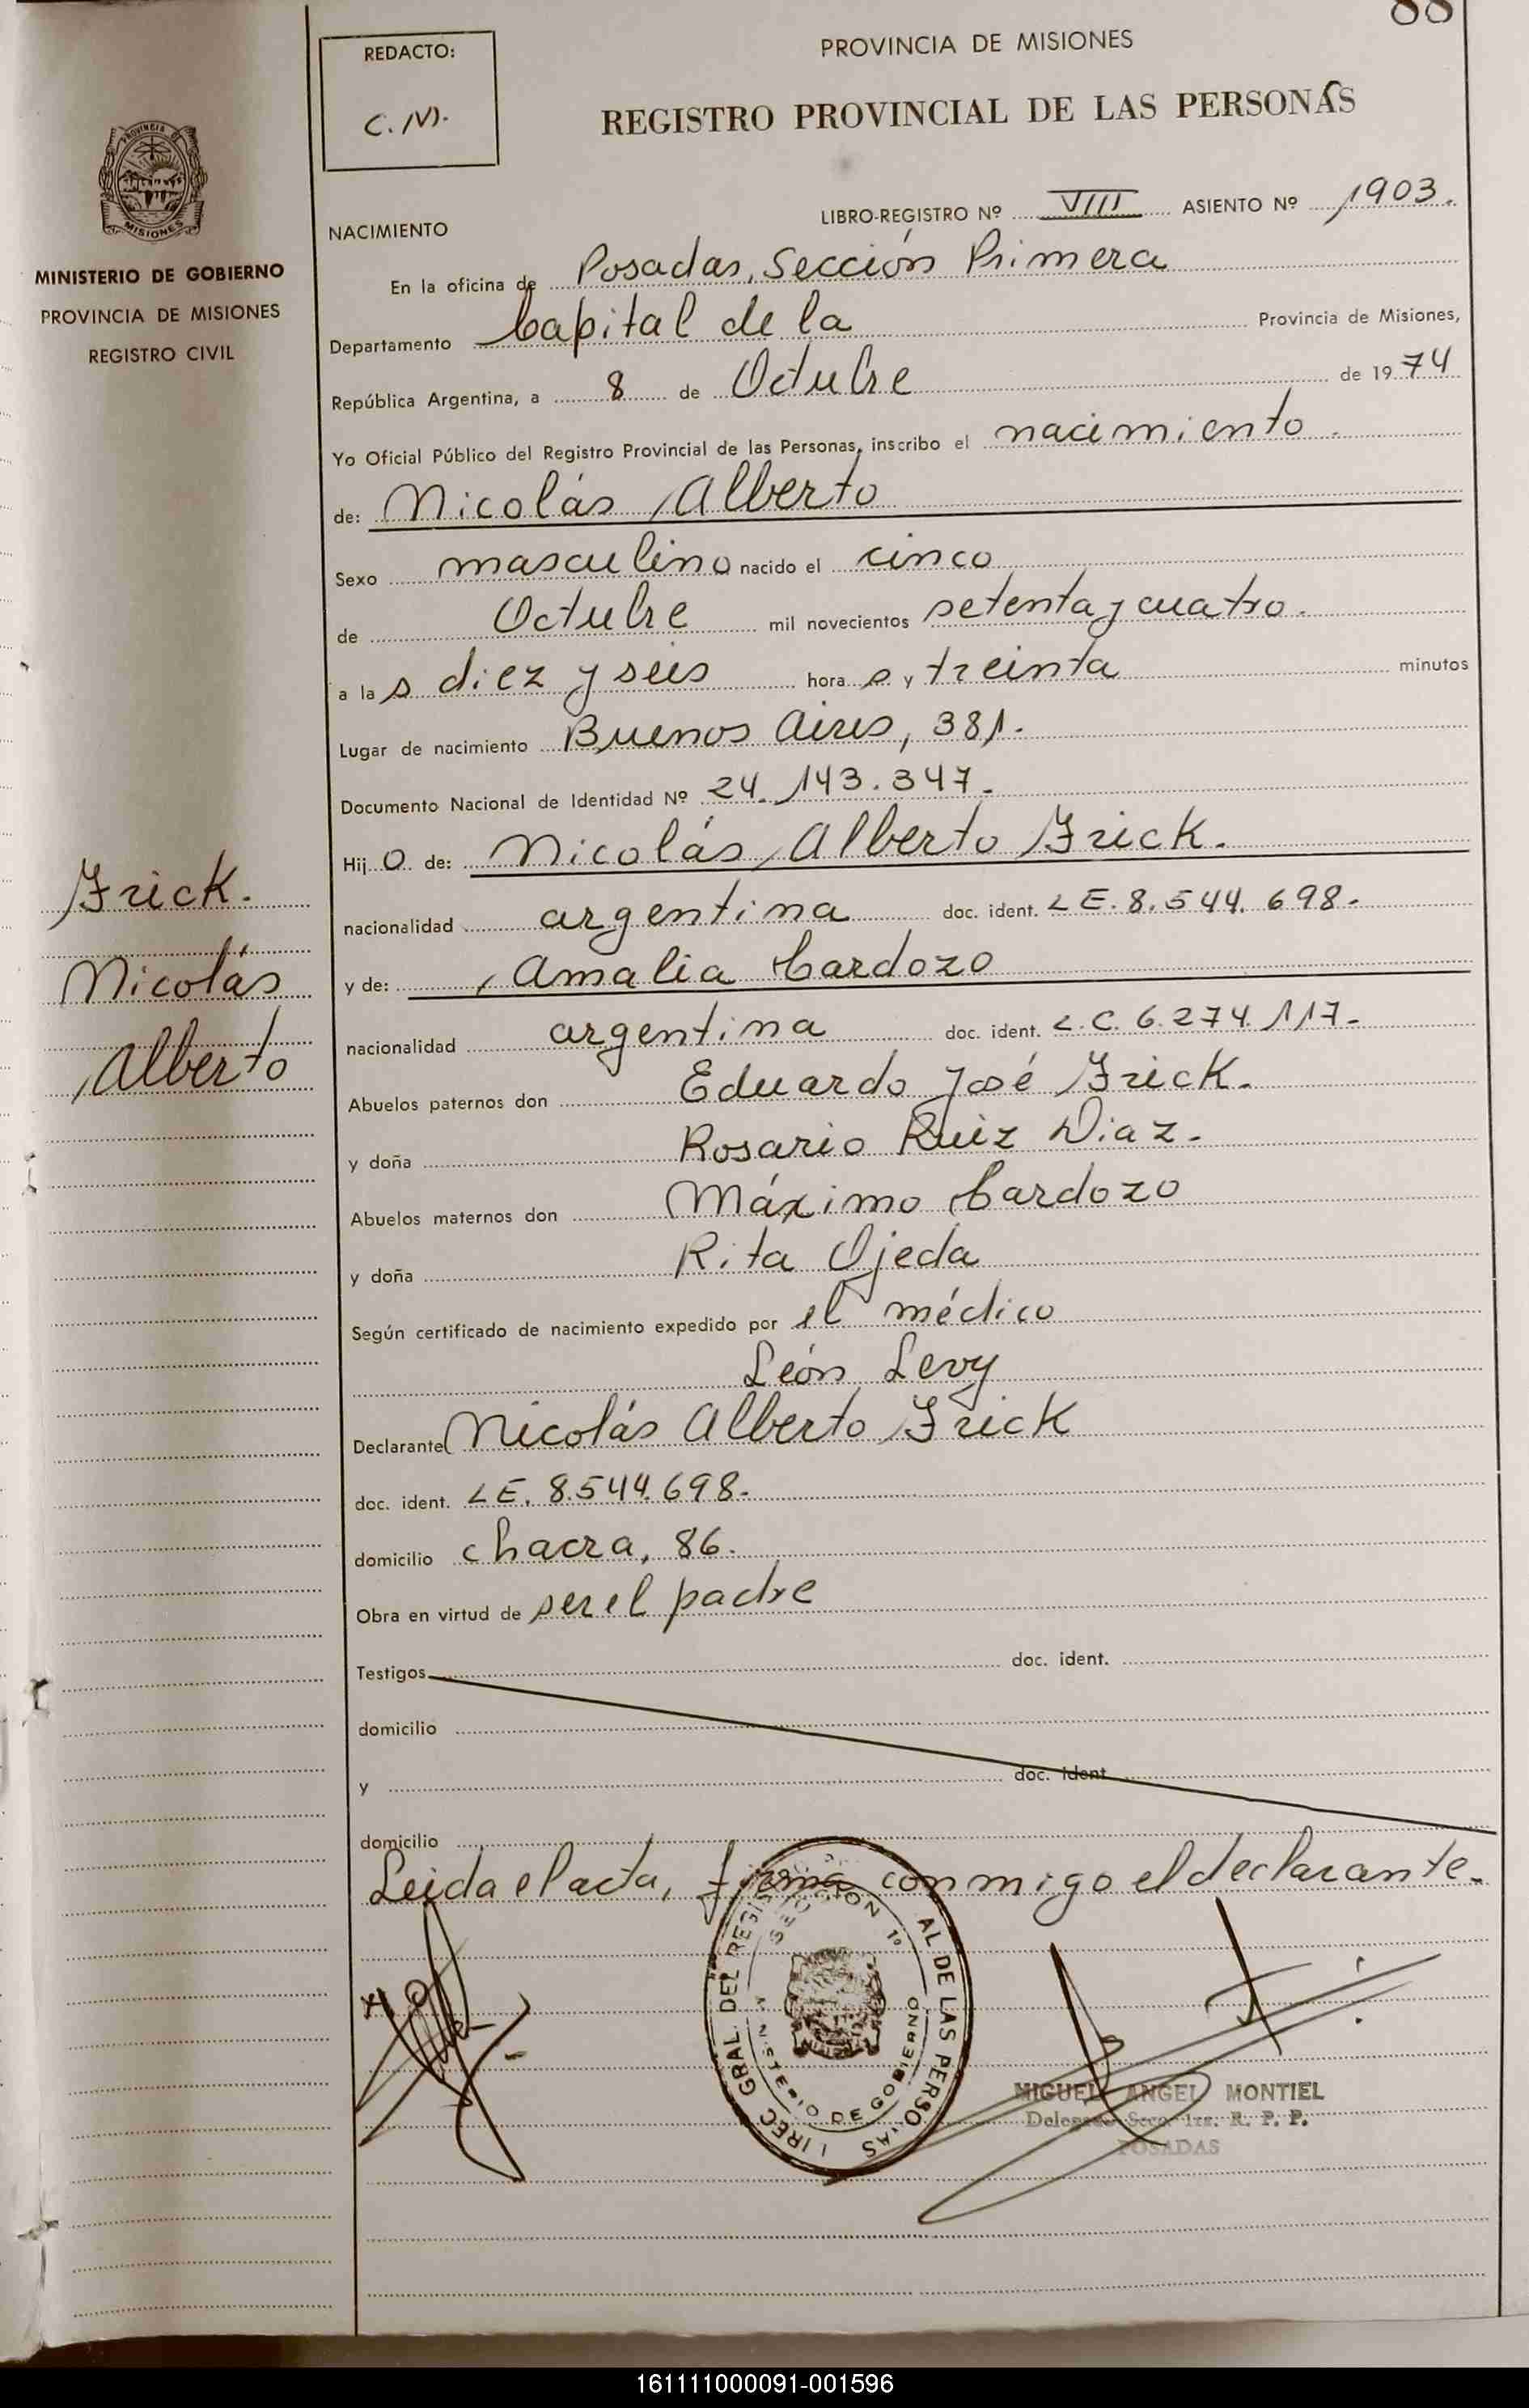 88
REDACTO:
C.N.
PROVINCIA DE MISIONES
REGISTRO PROVINCIAL DE LAS PERSONAS
PROVINCIA DE
MISIONES
MINISTERIO DE GOBIERNO
PROVINCIA DE MISIONES
REGISTRO CIVIL
LIBRO-REGISTRO Nº VIII ASIENTO Nº 1903.
NACIMIENTO
En la oficina de Posadas, Sección Primera
Departamento Capital de la Provincia de Misiones,
República Argentina, a 8 de Octubre de 1974
Yo Oficial Público del Registro Provincial de las Personas, inscribo el nacimiento.
de: Nicolás Alberto
Sexo masculino nacido el cinco
de Octubre mil novecientos setenta y cuatro.
a las diez y seis horas y treinta minutos
Lugar de nacimiento Buenos Aires, 381.
Documento Nacional de Identidad Nº 24.143.347.
Hijo de: Nicolás Alberto Frick.
nacionalidad argentina doc. ident. L E. 8.544.698.
y de: Amalia Cardozo
nacionalidad argentina doc. ident. L.C. 6.274.117.
Abuelos paternos don Eduardo José Frick.
y doña Rosario Ruiz Diaz.
Abuelos maternos don Máximo Cardozo
y doña Rita Ojeda
Según certificado de nacimiento expedido por el médico
León Levy
Declarante Nicolás Alberto Frick
doc. ident. L E. 8.544.698.
domicilio chacra, 86.
Obra en virtud de ser el padre
Testigos doc. ident.
domicilio
y doc. ident.
domicilio
Leida el acta, firma conmigo el declarante.
Frick.
Nicolás
Alberto
DIREC GRAL. DEL REGIS AL DE LAS PERSONAS
SECCION 1º
MINISTERIO DE GOBIERNO
MIGUEL ANGEL MONTIEL
Delegado Secc. 1ra. R. P. P.
POSADAS
161111000091-001596